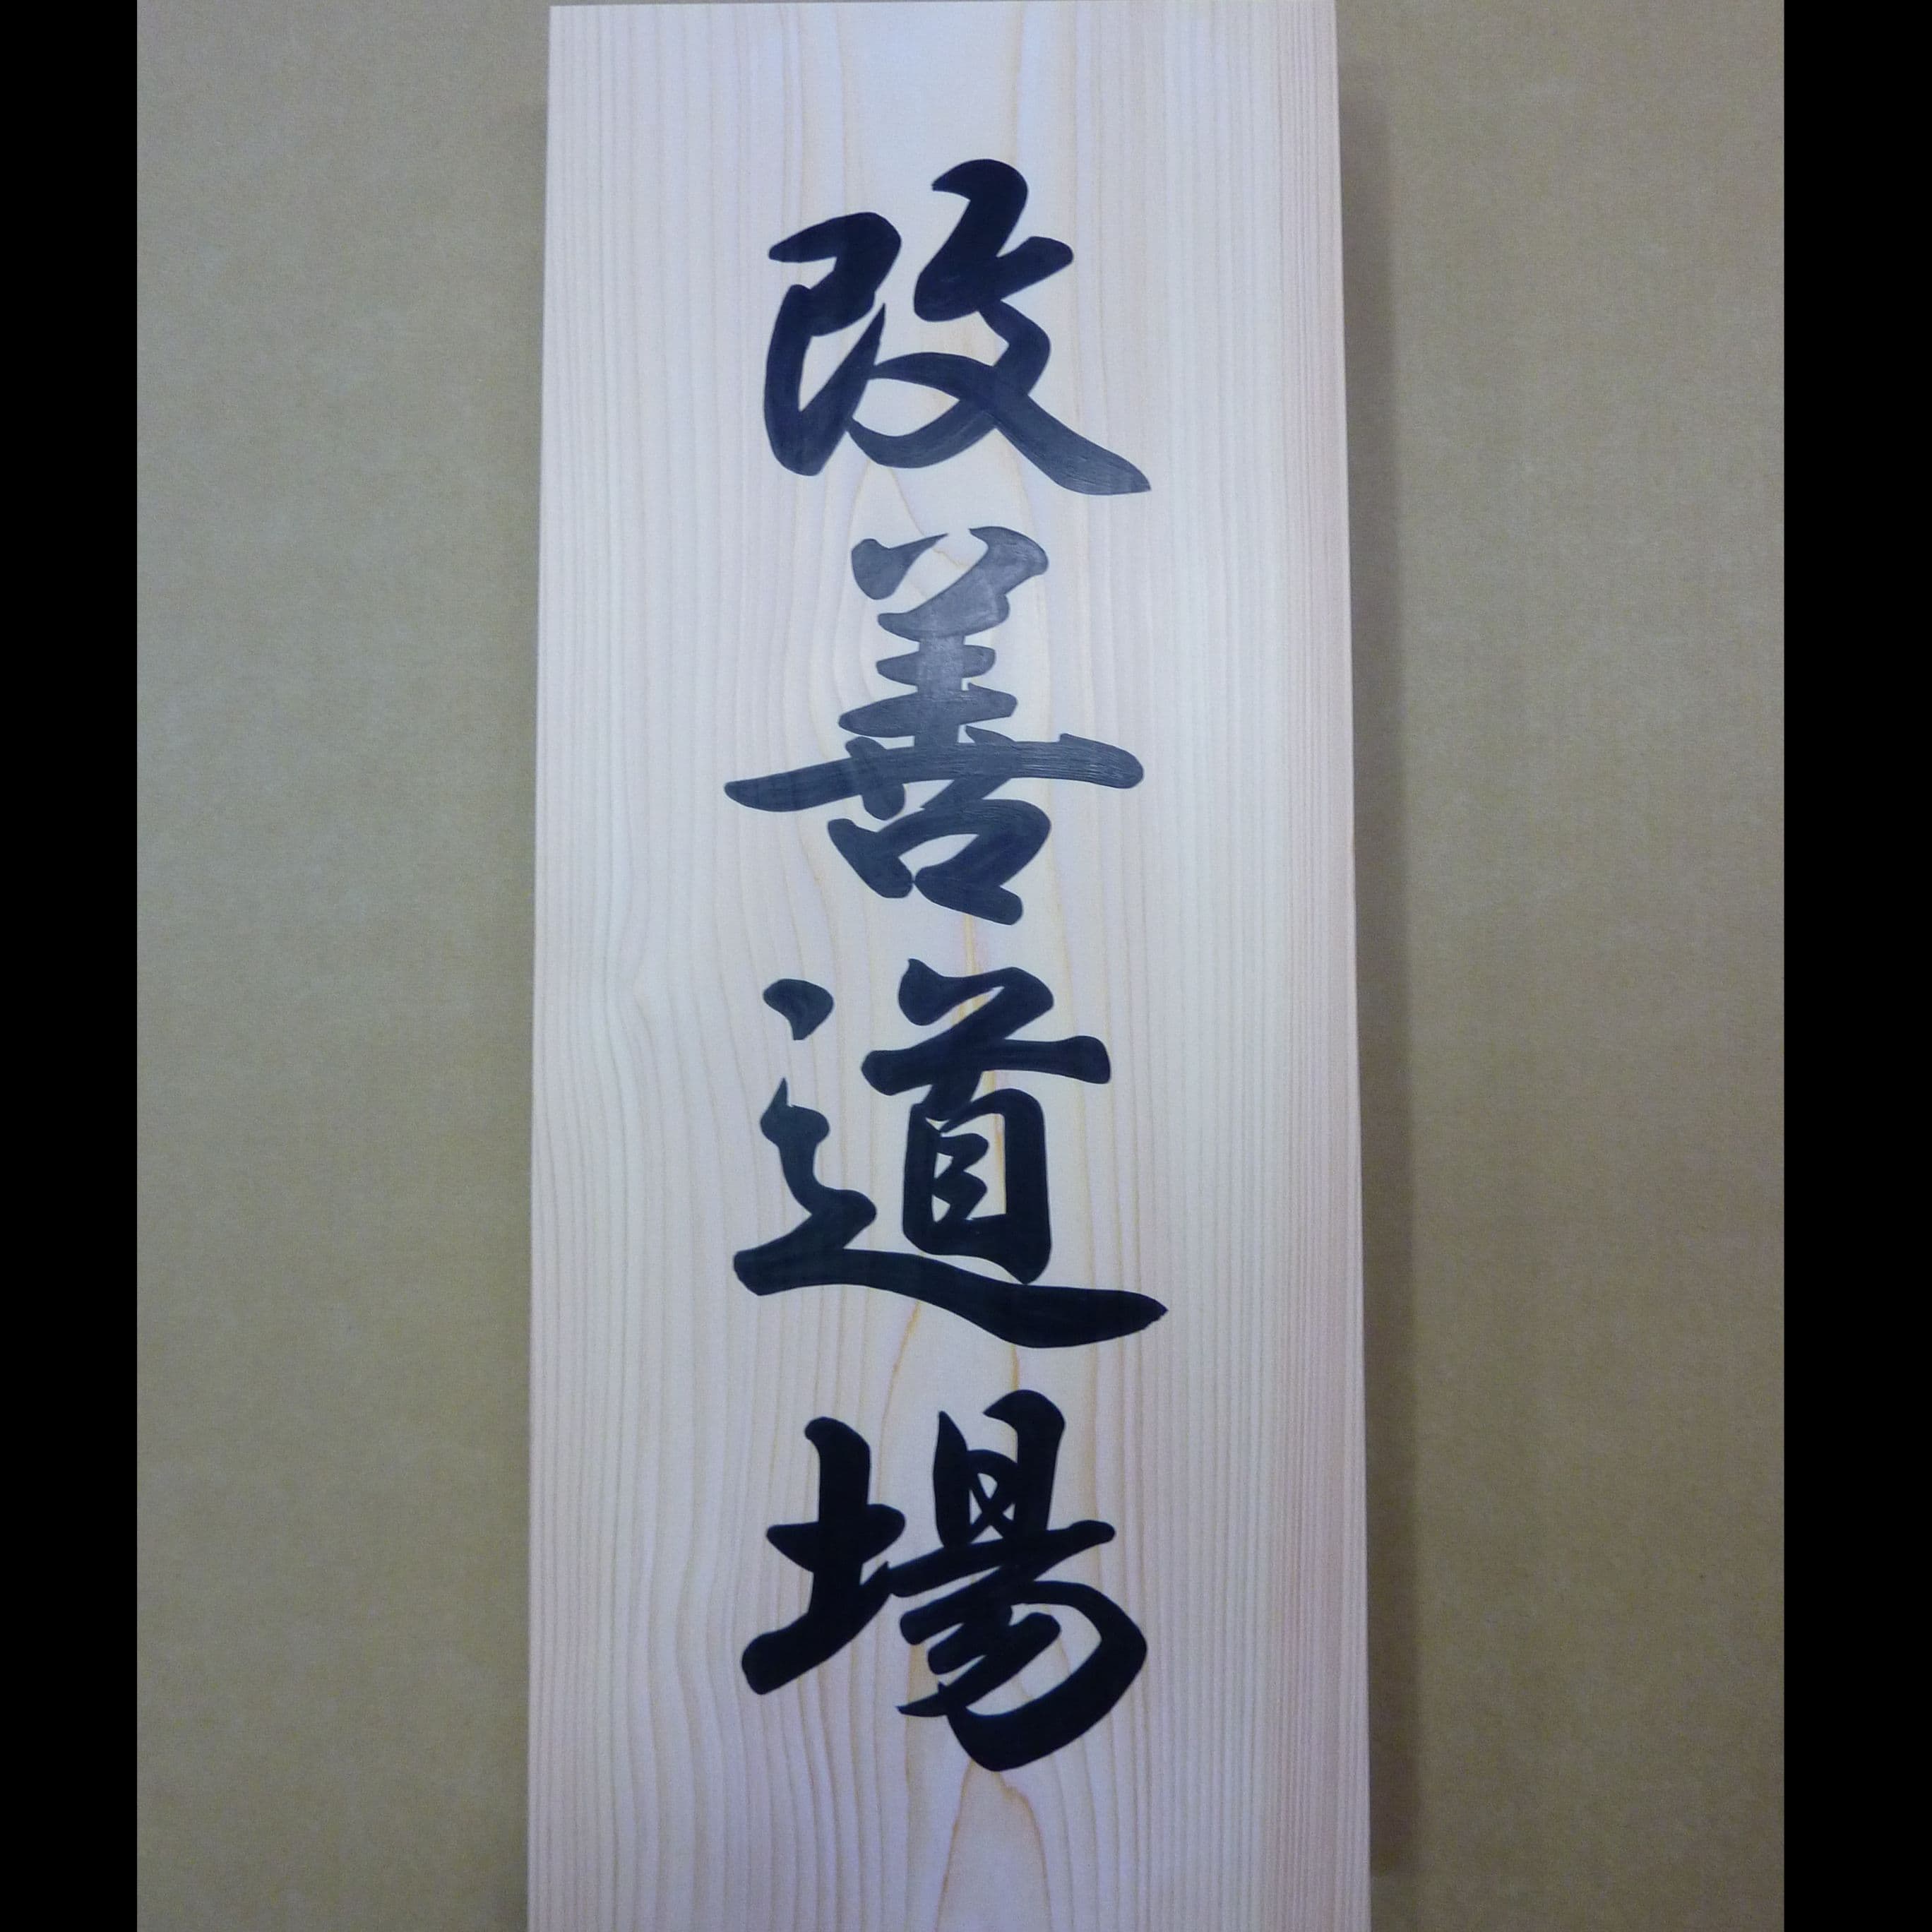 改善道場